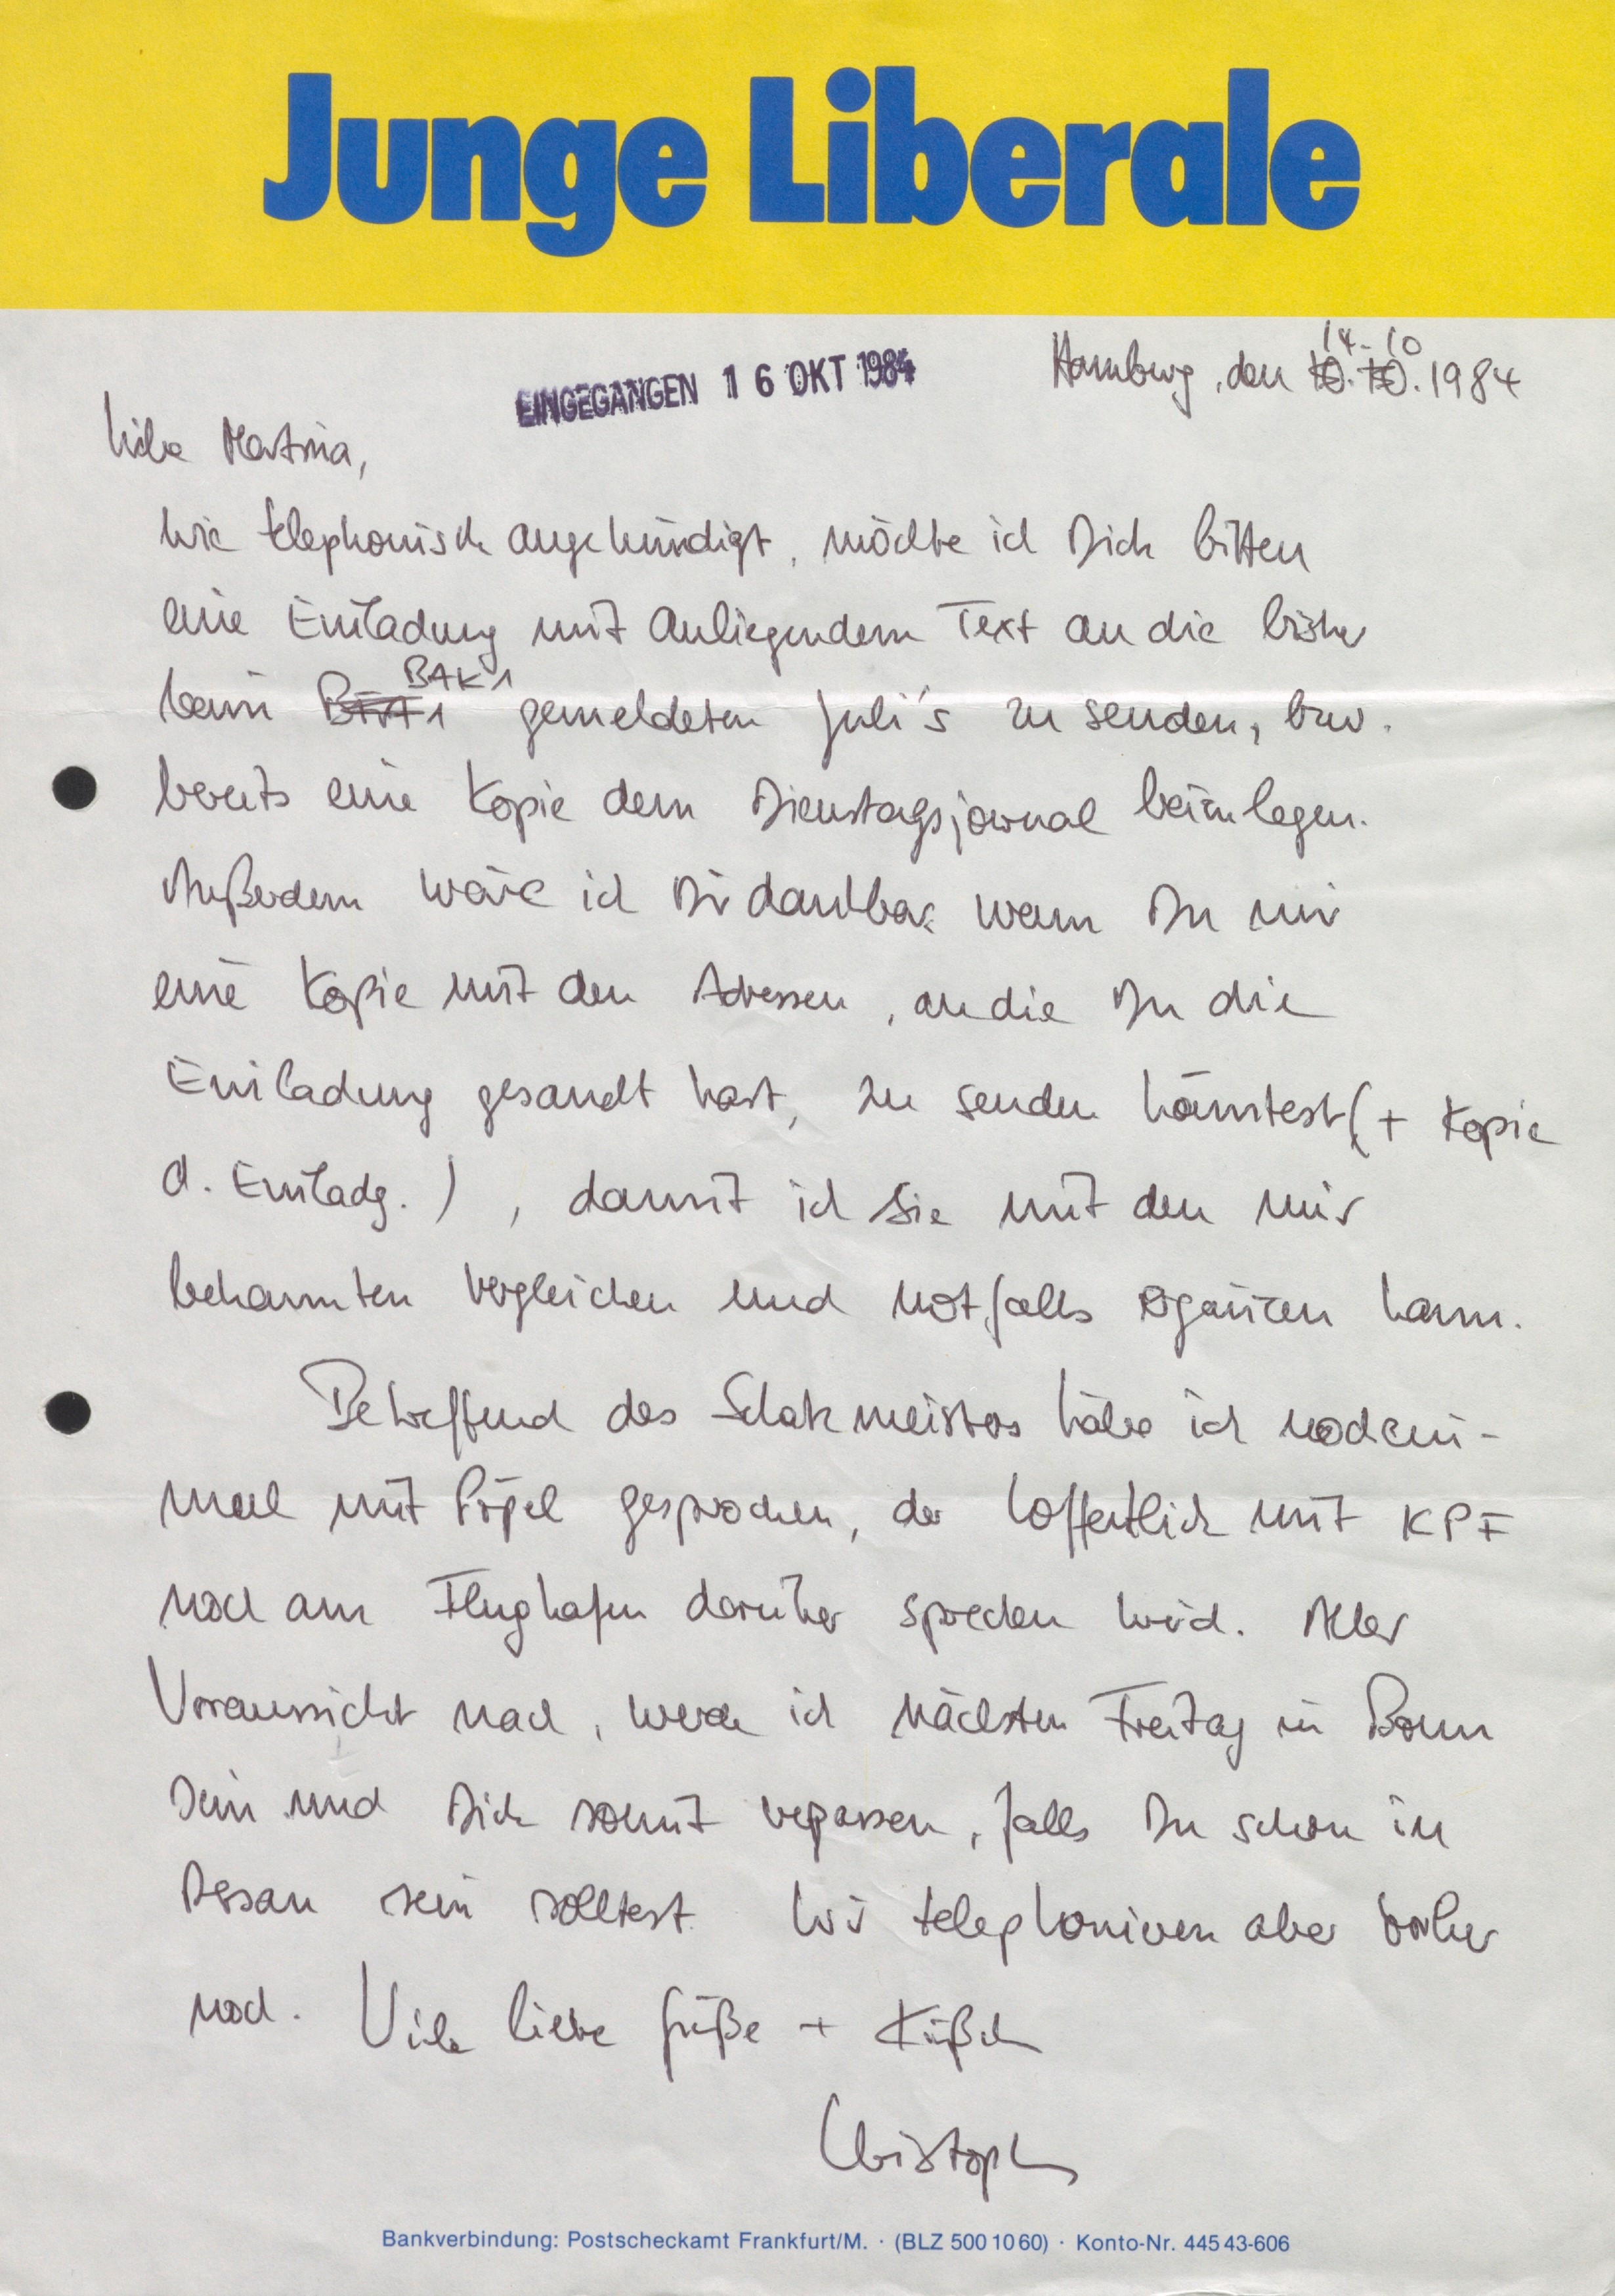 Junge Liberale
EINGEGANGEN 16 OKT 1984
Hamburg, den 14.10.1984
Liebe Martina,
wie telephonisch angekündigt, möchte ich Dich bitten
eine Einladung mit anliegendem Text an die bisher
beim BAK1 gemeldeten Juli's zu senden, bzw.
bereits eine Kopie dem Dienstagsjournal beizulegen.
Außerdem wäre ich Dir dankbar wenn Du mir
eine Kopie mit den Adressen, an die Du die
Einladung gesandt hast, zu senden könntest (+ Kopie
d. Einladg.), damit ich sie mit den mir
bekannten vergleichen und notfalls ergänzen kann.
Betreffend des Schatzmeisters habe ich nochein-
mal mit gesprochen, der hoffentlich mit KPF
noch am Flughafen darüber sprechen wird. Aller
Vorraussicht nach, werde ich nächsten Freitag in Bonn
sein und Dich somit verpassen, falls Du schon in
Dessau sein solltest. Wir telephonieren aber vorher
noch. Viele liebe Grüße + Küßch
Christoph
Bankverbindung: Postscheckamt Frankfurt/M. · (BLZ 500 10 60) · Konto-Nr. 445 43-606